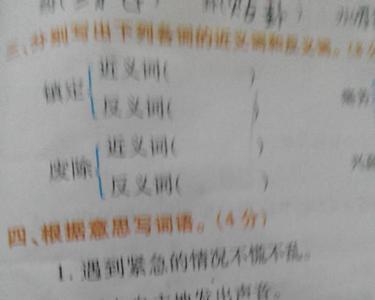 三、分别写出下列各词的近义词和反义词。
镇定
近义词( )
反义词( )
废除
近义词( )
反义词( )
四、根据意思写词语。(4分)
1. 遇到紧急的情况不慌不乱。
地发出声音。